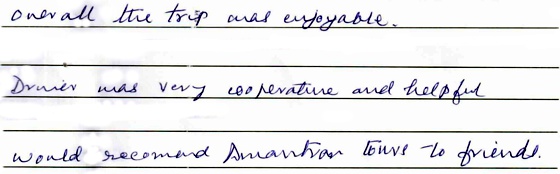 Overall the trip was enjoyable.
Driver was very cooperative and helpful
would recomend Amantran tours to friends.